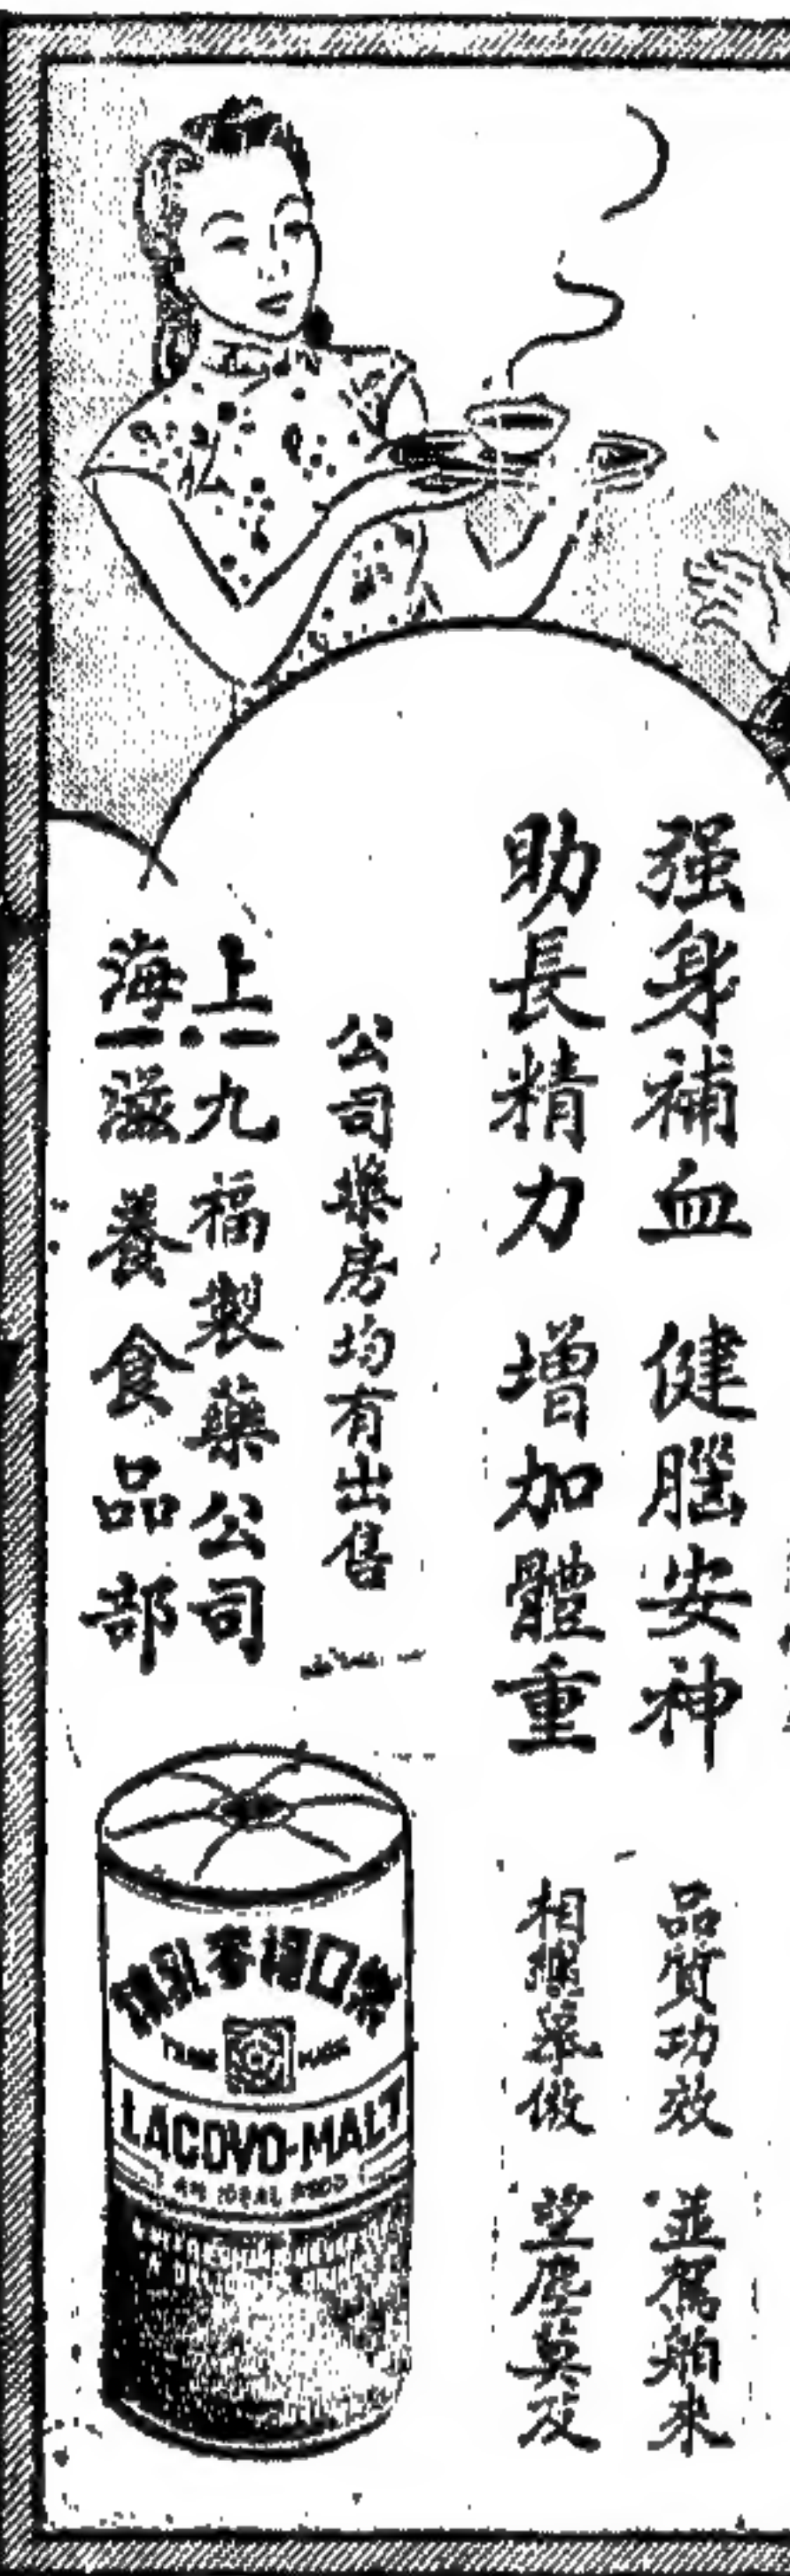 强身補血 健腦安神
助長精力 增加體重
品質功效 並駕舶來
相繼羣倣 望塵莫及
公司藥房均有出售
上海九福製藥公司
滋養食品部
樂口福麥乳精
TRADE MARK
LACOVO-MALT
AN IDEAL FOOD